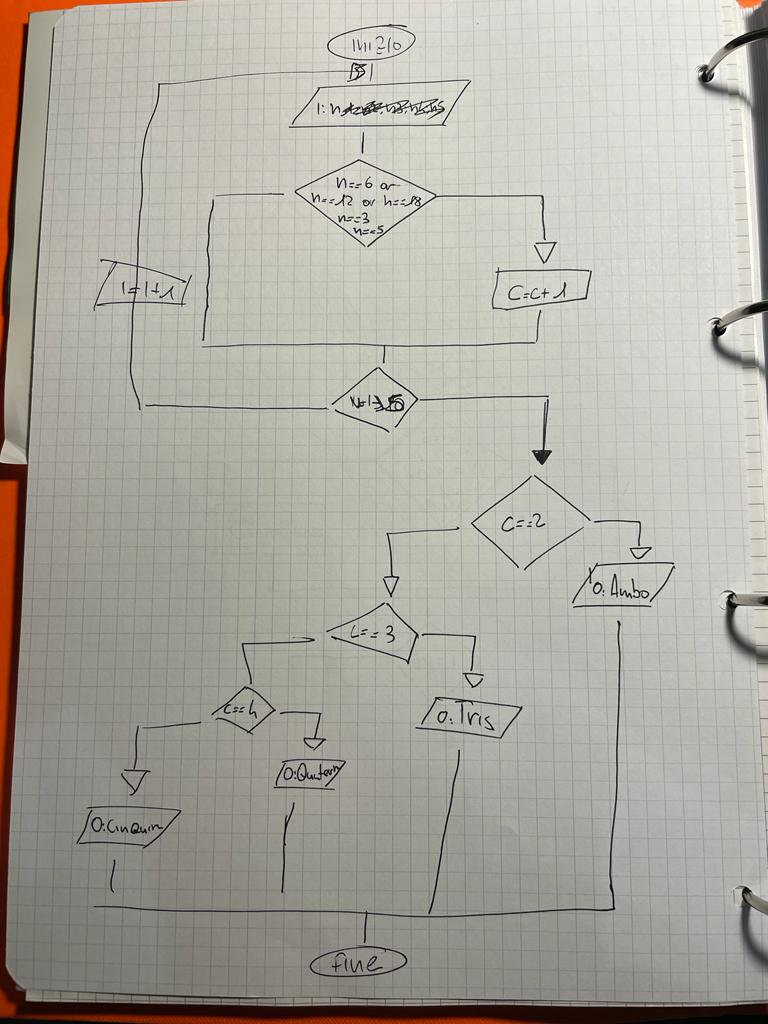 inizio
I: n
n==6 or
n==12 or n==18
n==3
n==5
I=I+1
C=C+1
C==2
O: Ambo
C==3
C==4
O: Tris
O: Quatern
O: Cinquin
fine